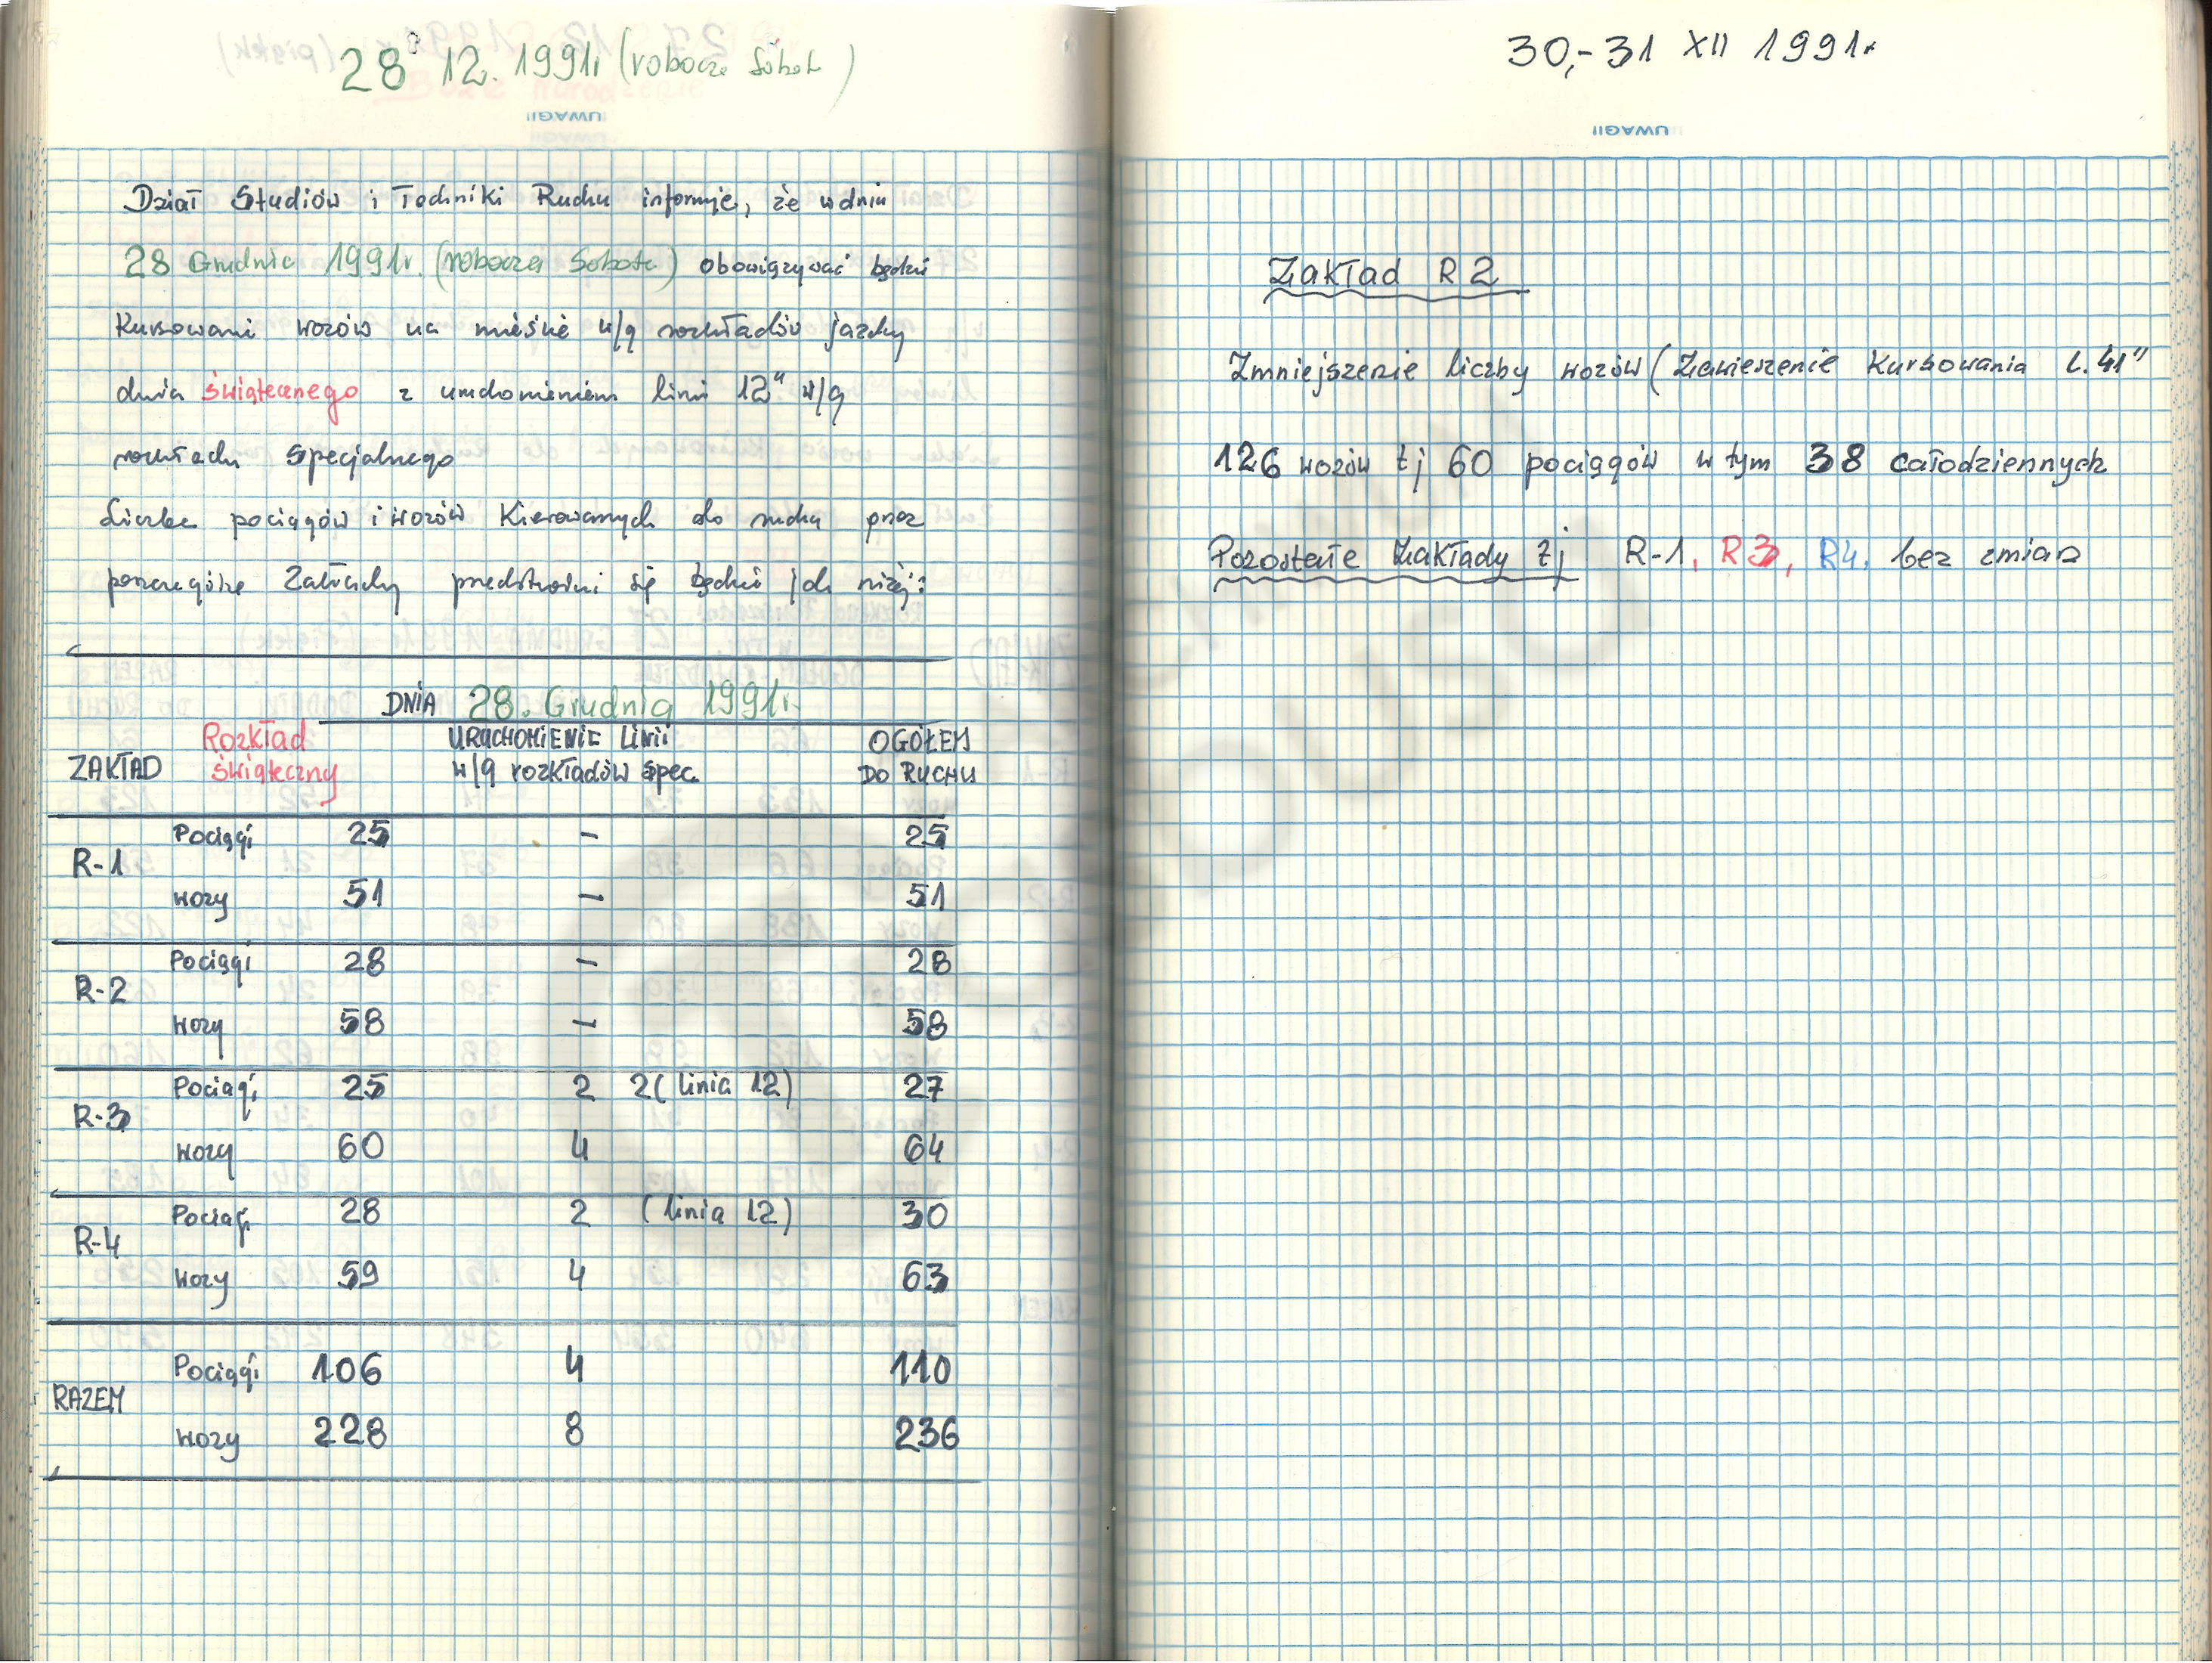 28 12. 1991r (robocza Sobota)
UWAGI!
Dział Studiów i Techniki Ruchu informuje, że w dniu
28 Grudnia 1991r. (robocza Sobota) obowiązywać będzie
Kursowanie wozów na mieście w/g rozkładów jazdy
dnia świątecznego z uruchomieniem linii 12" w/g
rozkładu specjalnego
Liczba pociągów i wozów Kierowanych do ruchu przez
poszczególne Zakłady przedstawiać się będzie jak niżej:
DNIA 28. Grudnia 1991r.
ZAKŁAD Rozkład świąteczny URUCHOMIENIE LINII w/g rozkładów spec. OGÓŁEM DO RUCHU
R-1 Pociągi 25 – 25
wozy 51 – 51
R-2 Pociągi 28 – 28
wozy 58 – 58
R-3 Pociągi 25 2 2 (linia 12) 27
wozy 60 4 64
R-4 Pociągi 28 2 (linia 12) 30
wozy 59 4 63
RAZEM Pociągi 106 4 110
wozy 228 8 236
30,-31 XII 1991r
UWAGI!
Zakład R2
Zmniejszenie liczby wozów (Zawieszenie Kursowania L. 41"
126 wozów tj 60 pociągów w tym 38 całodziennych
Pozostałe Zakłady tj R-1, R3, R4. bez zmian